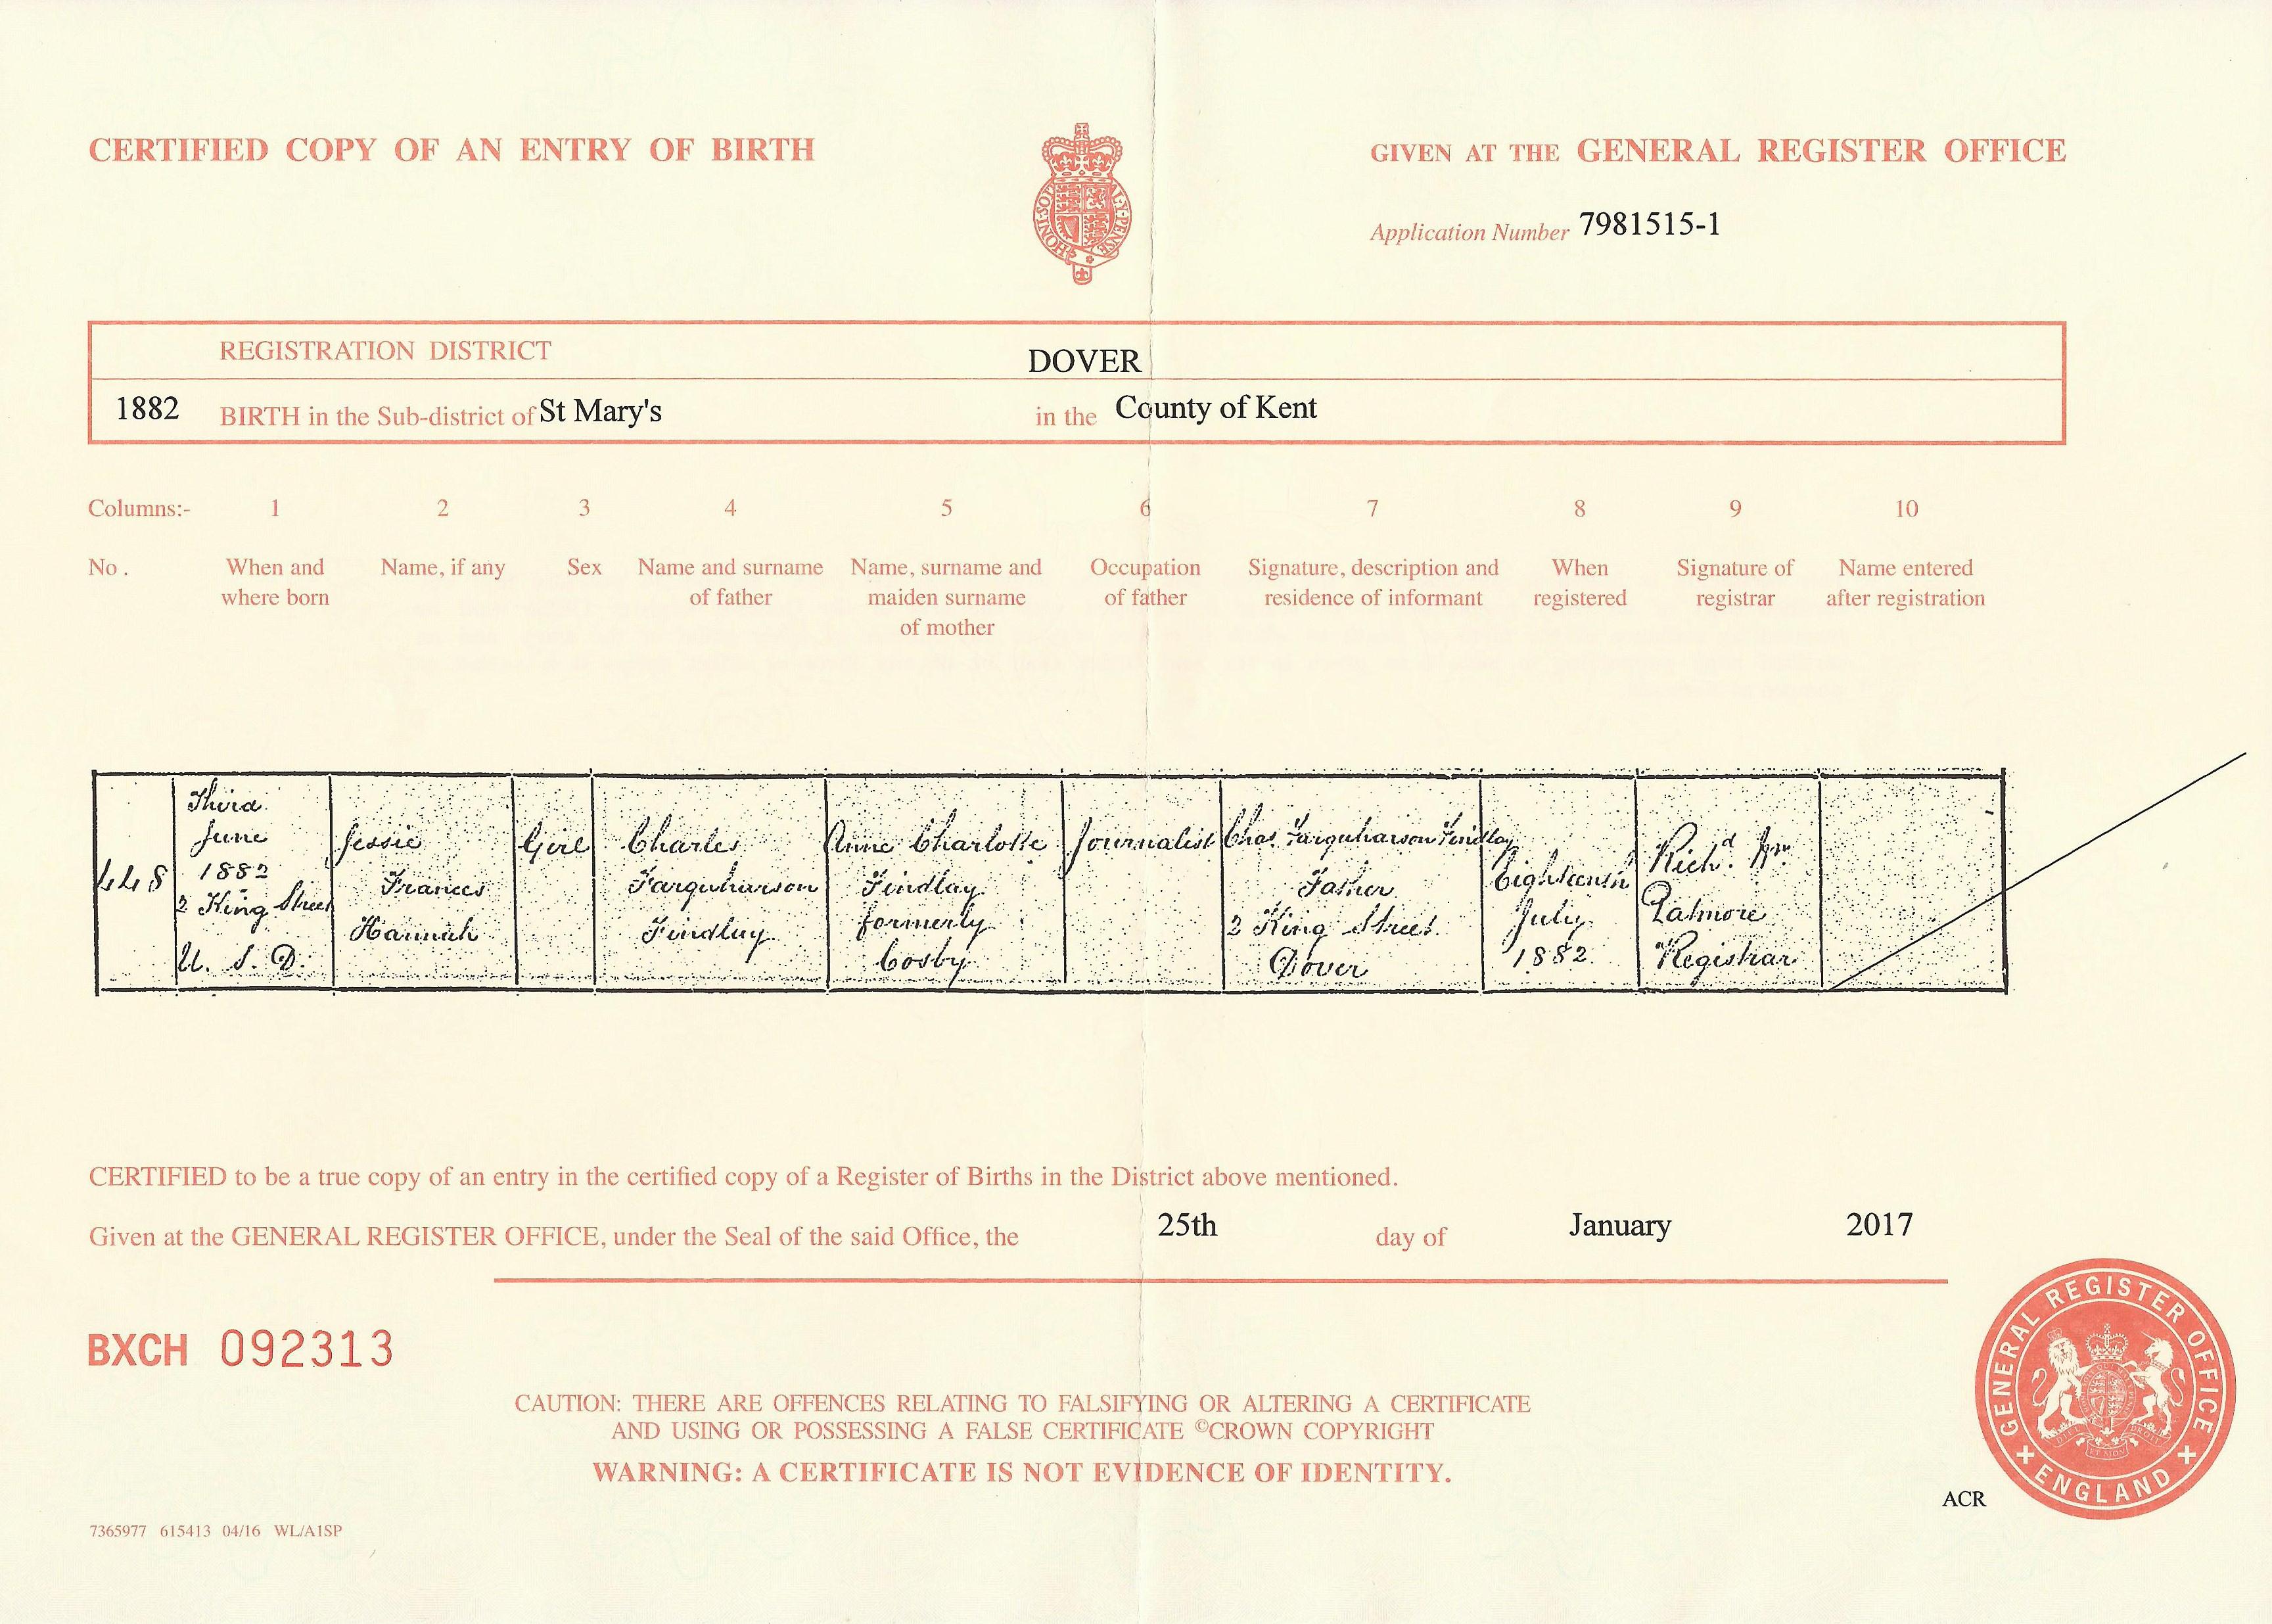 CERTIFIED COPY OF AN ENTRY OF BIRTH
GIVEN AT THE GENERAL REGISTER OFFICE
HONI SOIT MAL Y PENSE
Application Number 7981515-1
REGISTRATION DISTRICT DOVER
1882 BIRTH in the Sub-district of St Mary's in the County of Kent
Columns:- 1 2 3 4 5 6 7 8 9 10
No. When and where born
Name, if any
Sex
Name and surname of father
Name, surname and maiden surname of mother
Occupation of father
Signature, description and residence of informant
When registered
Signature of registrar
Name entered after registration
448
Third
June
1882
2 King Street
U. S. D.
Jessie
Frances
Hannah
Girl
Charles
Farquharson
Findlay
Anne Charlotte
Findlay
formerly
Cosby
Journalist
Chas. Farquharson Findlay
Father
2 King Street
Dover
Eighteenth
July
1882
Richd. Wm
Patmore
Registrar
CERTIFIED to be a true copy of an entry in the certified copy of a Register of Births in the District above mentioned.
Given at the GENERAL REGISTER OFFICE, under the Seal of the said Office, the 25th day of January 2017
BXCH 092313
CAUTION: THERE ARE OFFENCES RELATING TO FALSIFYING OR ALTERING A CERTIFICATE
AND USING OR POSSESSING A FALSE CERTIFICATE ©CROWN COPYRIGHT
WARNING: A CERTIFICATE IS NOT EVIDENCE OF IDENTITY.
GENERAL REGISTER OFFICE
ENGLAND
ACR
7365977 615413 04/16 WL/A1SP